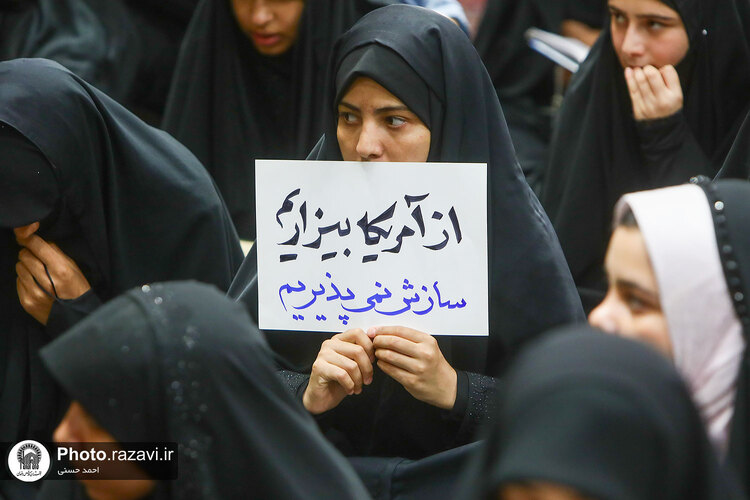 از آمریکا بیزاریم
سازش نمی پذیریم
Photo.razavi.ir
احمد حسنی